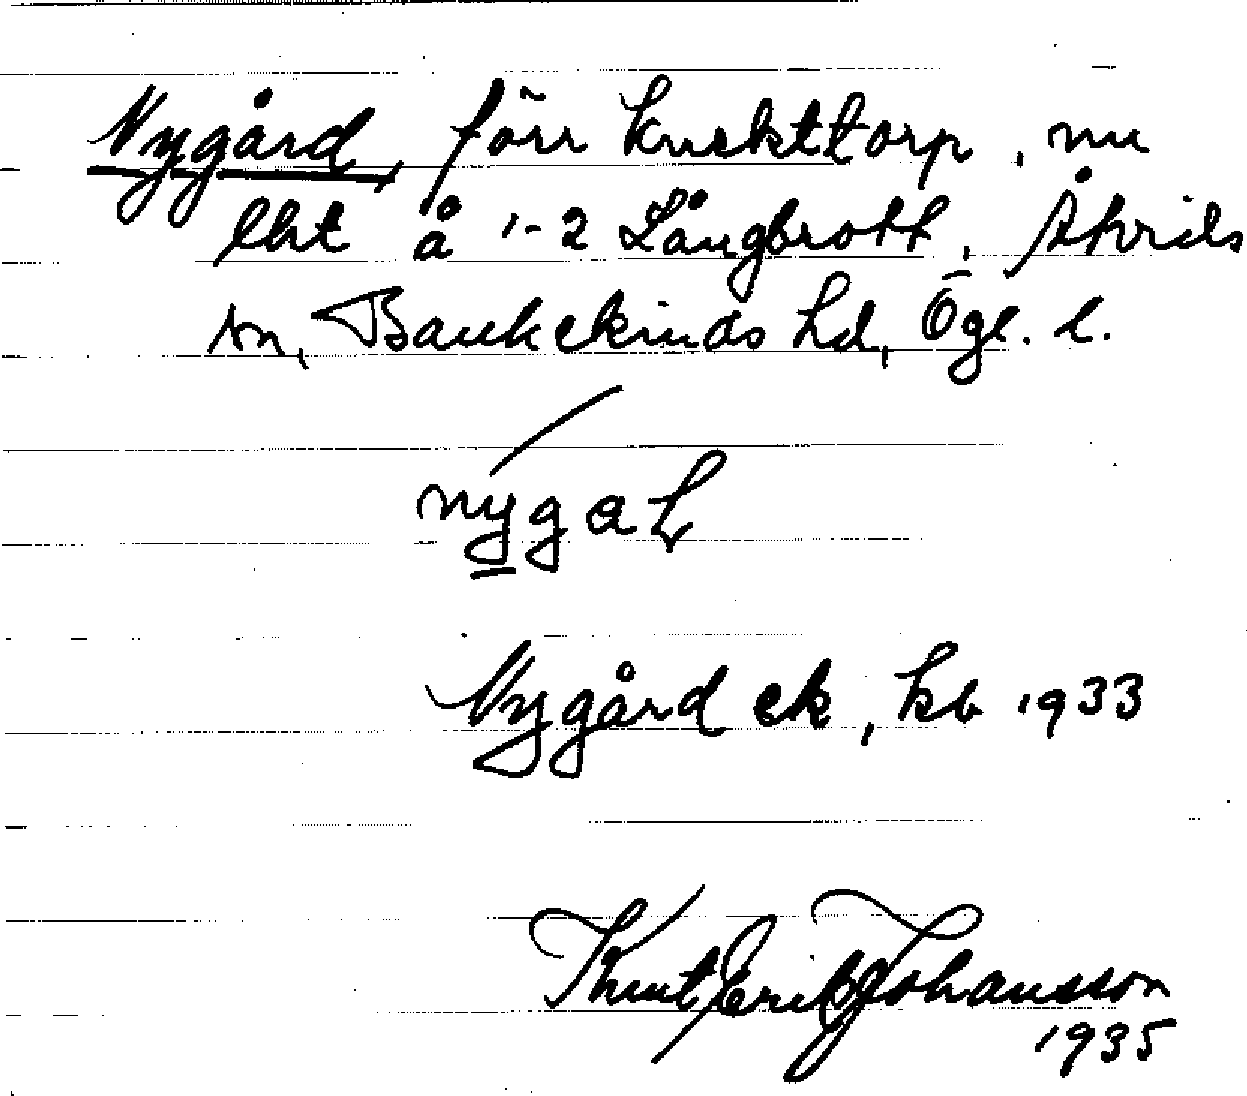 Nygård, förr knekttorp, nu
lht å 1-2 Långbrott, Åtvids
sn, Bankekinds hd, Ögl. l.
Nygård ek, kb 1933
Knut Erik Johansson
1935